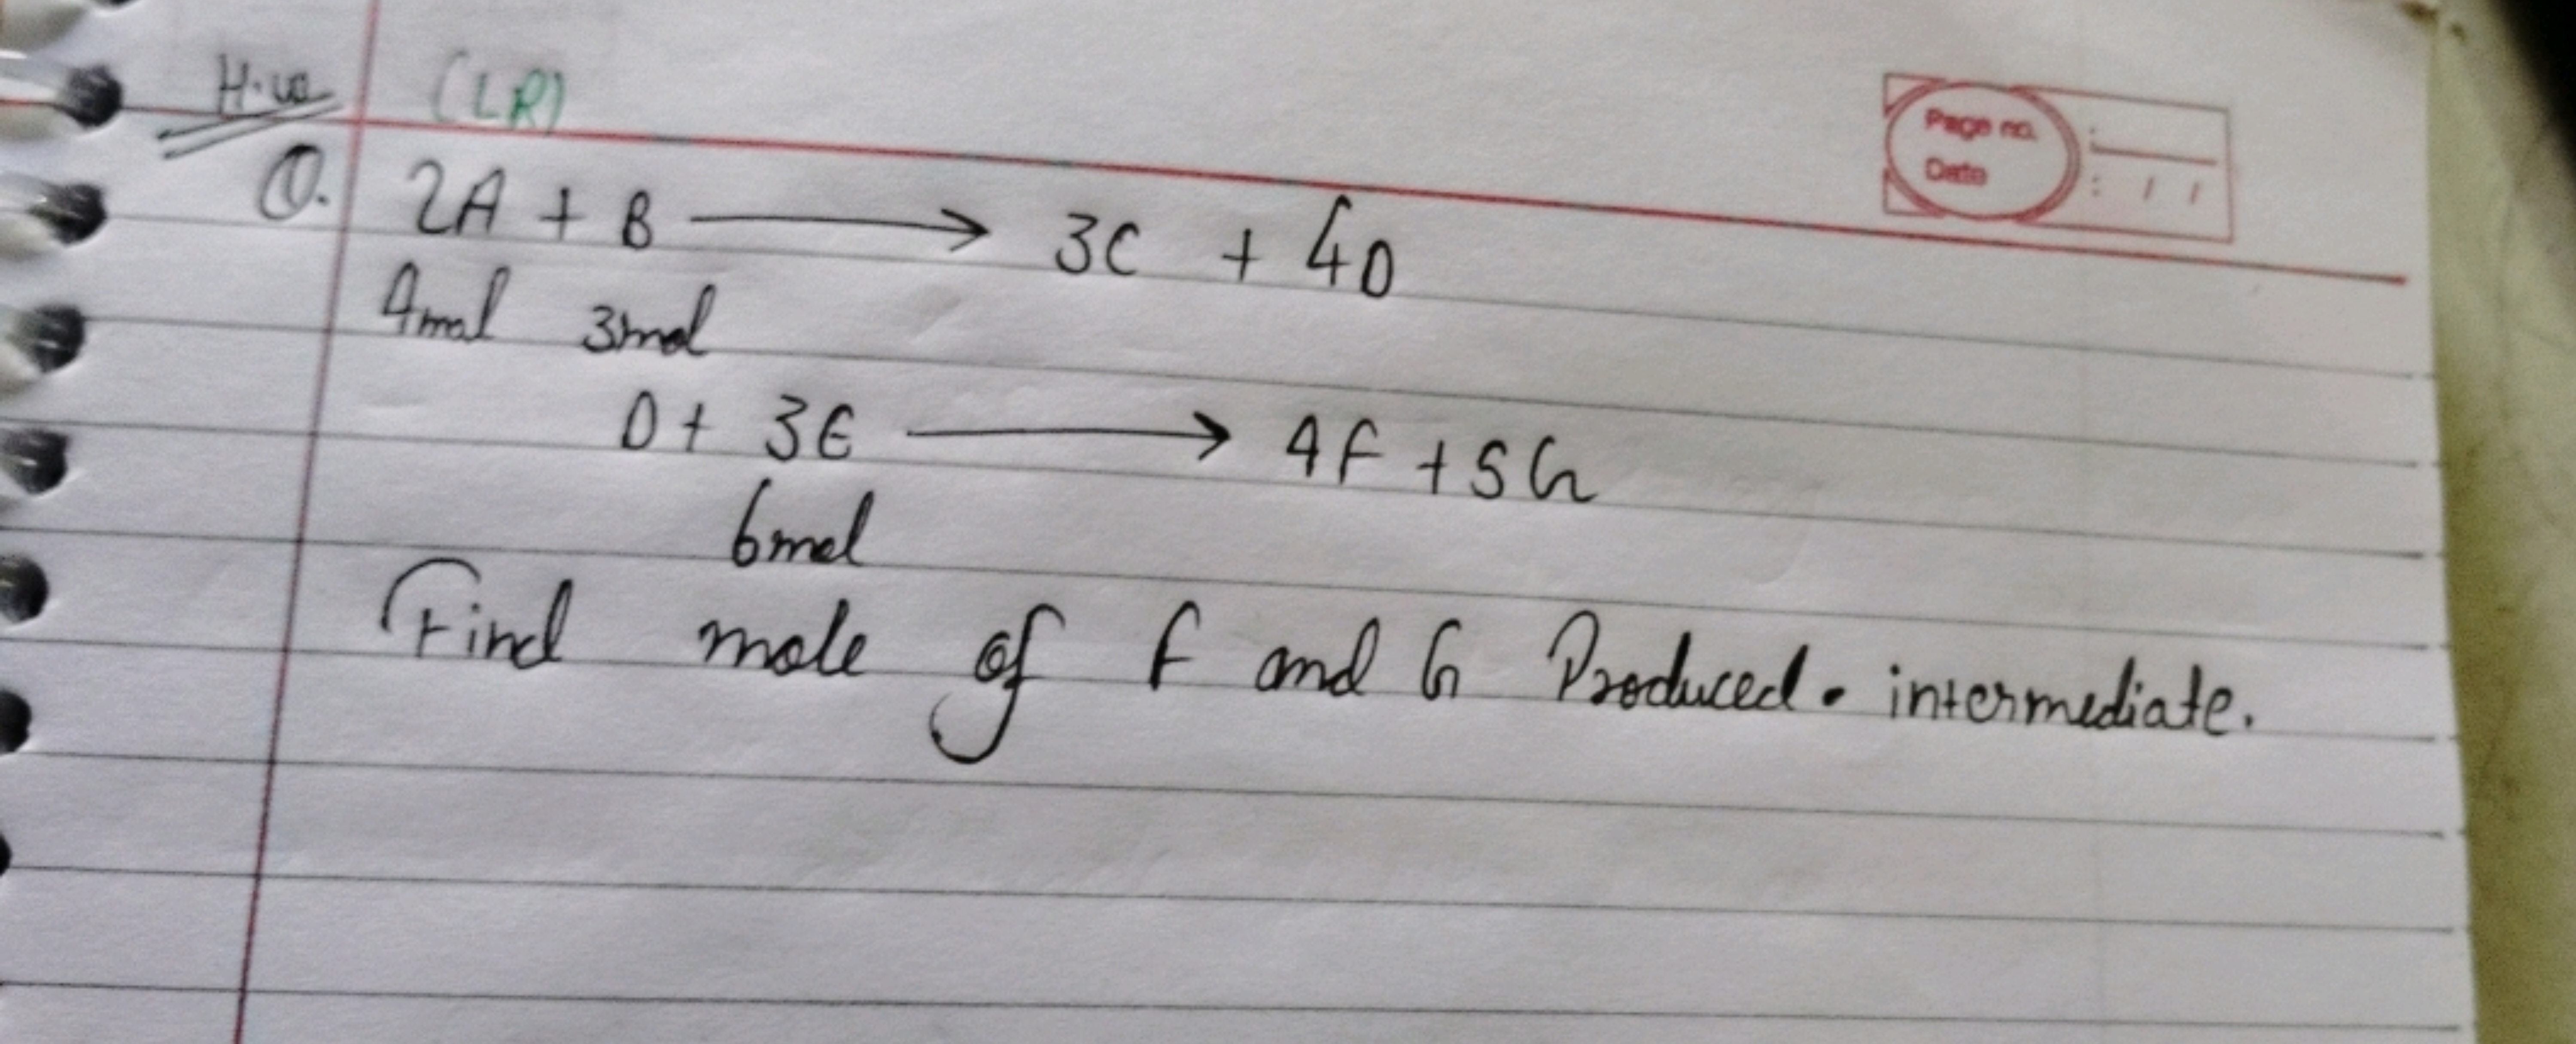 H.w (LR)
Page no. :
Date : / /
Q. 2A + B ⟶ 3C + 4D
4mol 3mol
D + 3E ⟶ 4F + 5G
6mol
Find mole of F and G Produced. intermediate.